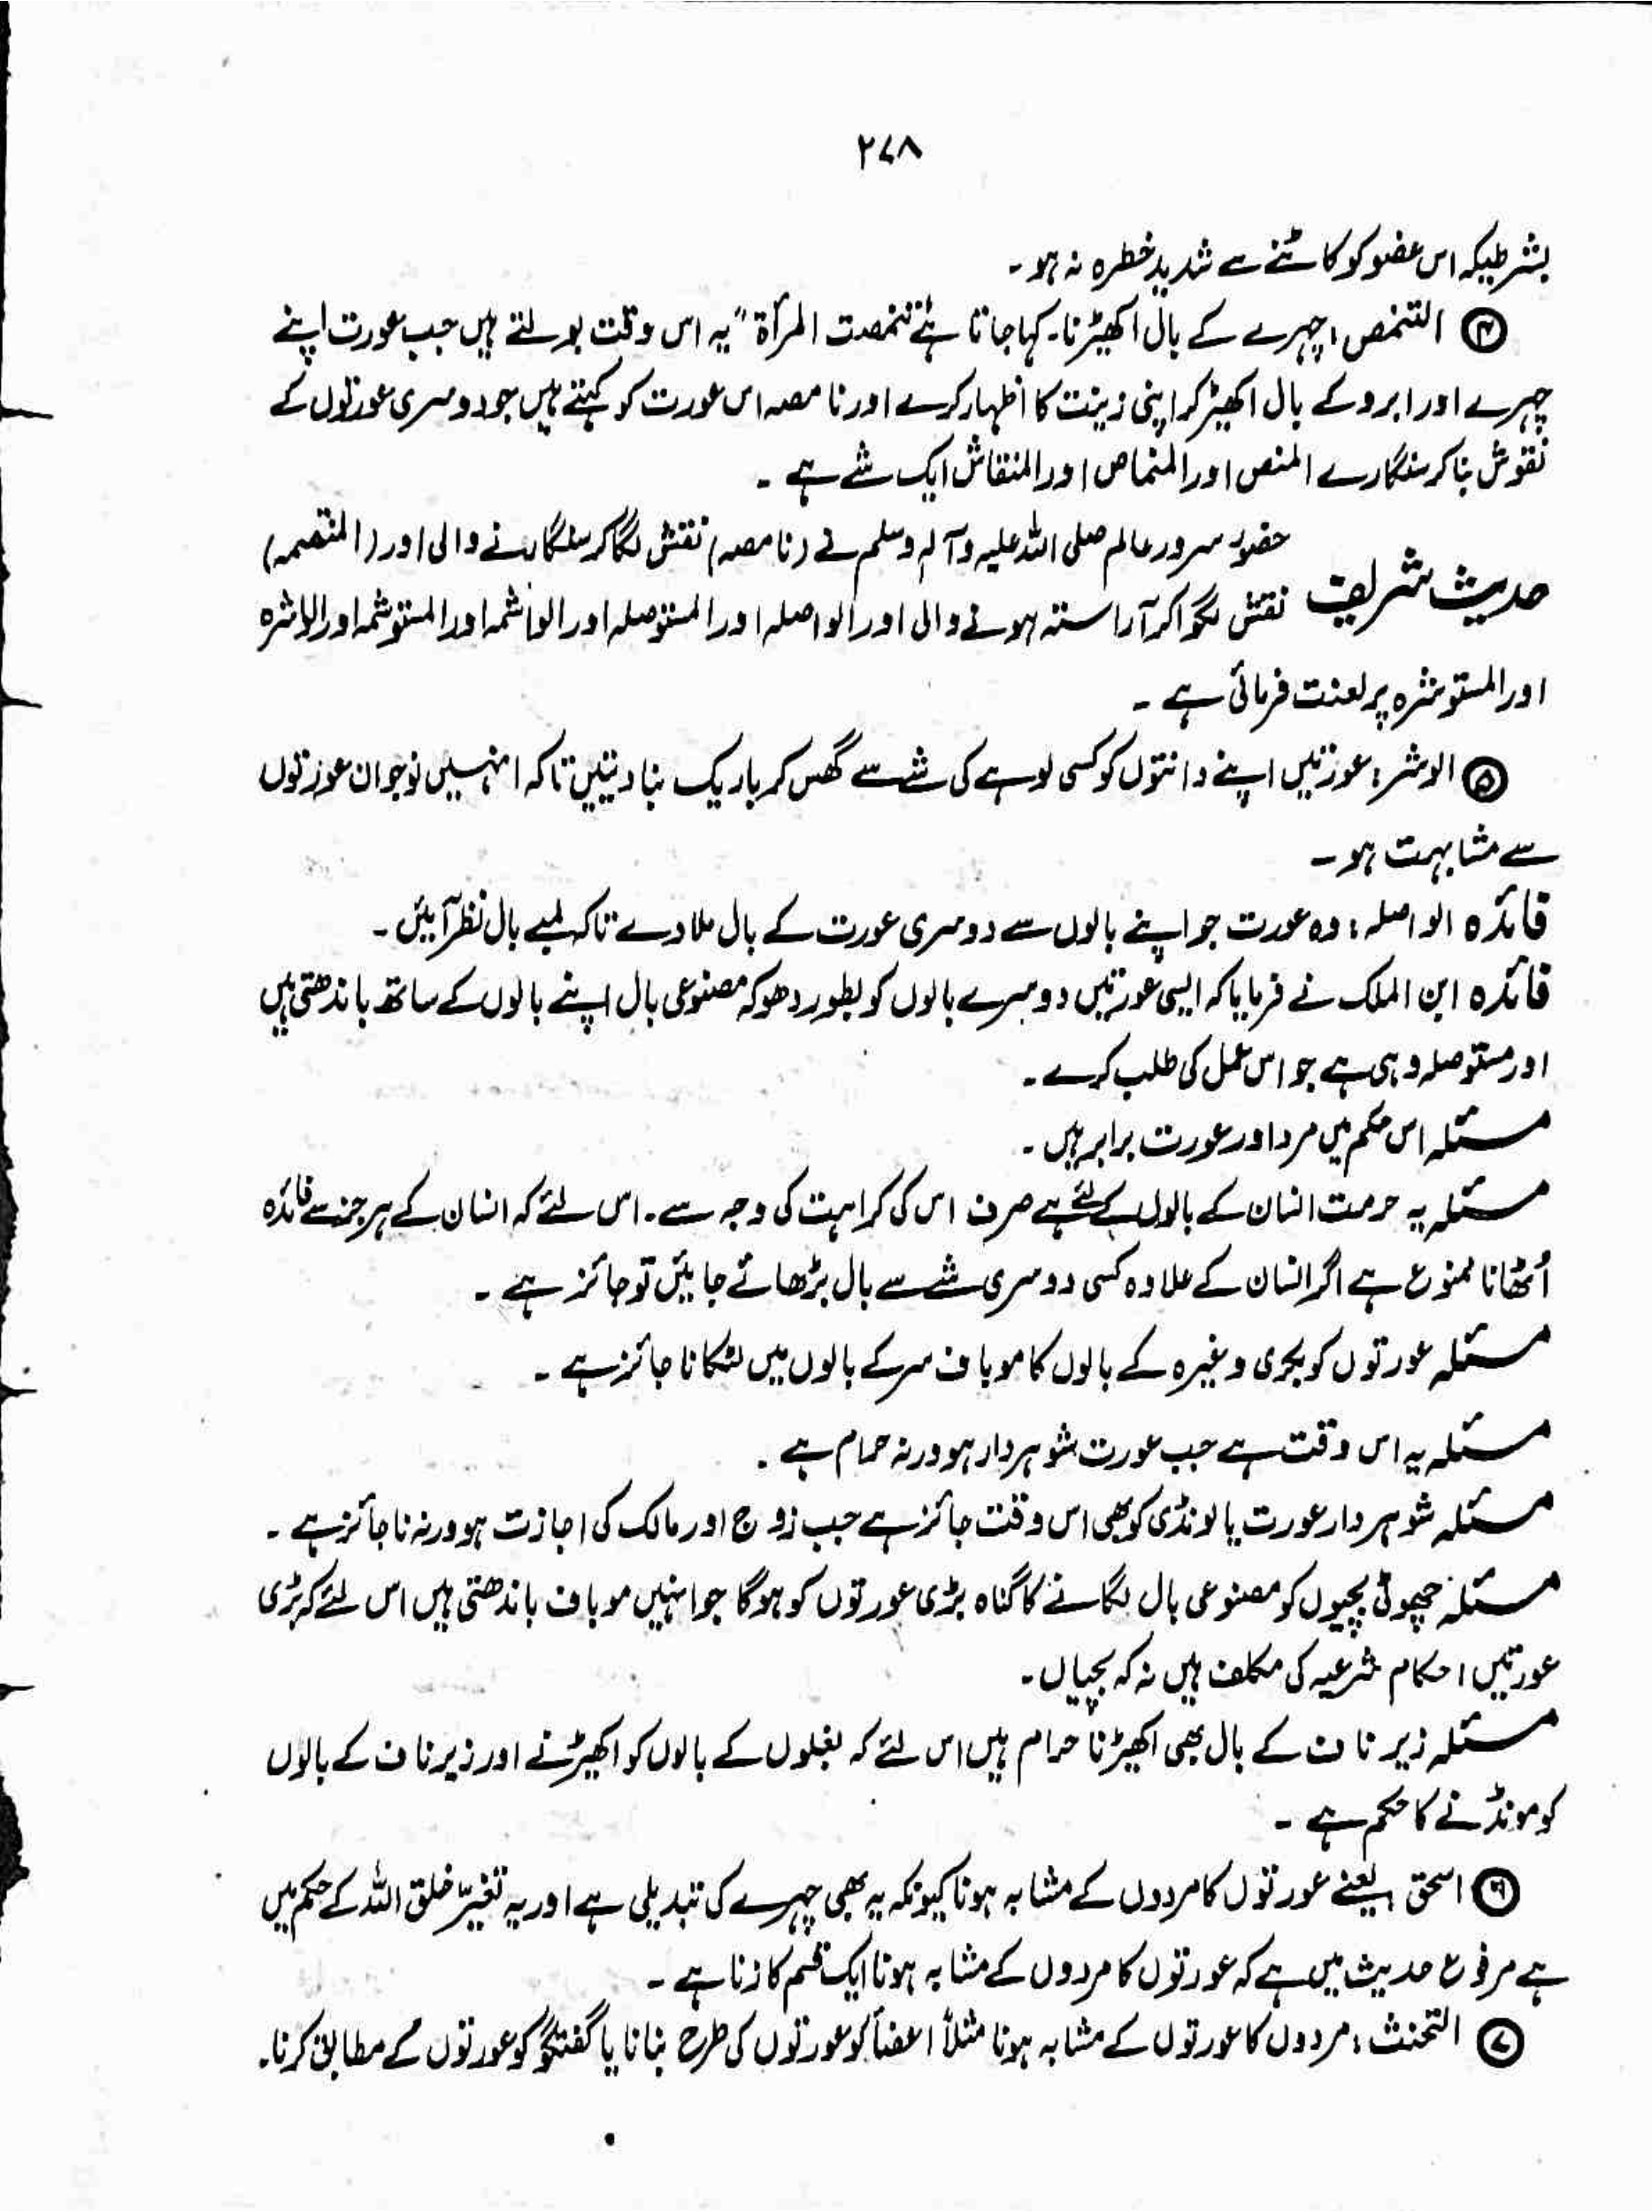 ۲۷۸
بشرطیکہ اس عضو کو کاٹنے سے شدید خطرہ نہ ہو۔
④ التنمص، چہرے کے بال اکھیڑنا۔ کہا جاتا ہے "تنمصت المرأة" یہ اس وقت بولتے ہیں جب عورت اپنے
چہرے اور ابرو کے بال اکھیڑ کر اپنی زینت کا اظہار کرے اور نامصہ اس عورت کو کہتے ہیں جو دوسری عورتوں کے
نقوش بنا کر سنگارے المنص اور المنماص اور المنقاش ایک شے ہے۔
حضور سرور عالم صلی اللہ علیہ وآلہ وسلم نے (نامصہ) نقش لگا کر سنگارنے والی اور (المنتصمہ)
حدیث شریف نقش لگوا کر آراستہ ہونے والی اور الواصلہ اور المستوصلہ اور الواشمہ اور المستوشمہ اور الواشرہ
اور المستوشرہ پر لعنت فرمائی ہے۔
⑤ الوشر: عورتیں اپنے دانتوں کو کسی لوہے کی شے سے گھس کر باریک بنا دیتیں تاکہ انہیں نوجوان عورتوں
سے مشابہت ہو۔
فائدہ الواصلہ: وہ عورت جو اپنے بالوں سے دوسری عورت کے بال ملا دے تاکہ لمبے بال نظر آئیں۔
فائدہ ابن الملک نے فرمایا کہ ایسی عورتیں دوسرے بالوں کو بطور دھوکہ مصنوعی بال اپنے بالوں کے ساتھ باندھتی ہیں
اور مستوصلہ وہی ہے جو اس عمل کی طلب کرے۔
مسئلہ اس حکم میں مرد اور عورت برابر ہیں۔
مسئلہ یہ حرمت انسان کے بالوں کے لئے ہے صرف اس کی کراہت کی وجہ سے۔ اس لئے کہ انسان کے ہر جز سے فائدہ
اُٹھانا ممنوع ہے اگر انسان کے علاوہ کسی دوسری شے سے بال بڑھائے جائیں تو جائز ہے۔
مسئلہ عورتوں کو بکری وغیرہ کے بالوں کا موباف سر کے بالوں میں لٹکانا جائز ہے۔
مسئلہ یہ اس وقت ہے جب عورت شوہردار ہو ورنہ حرام ہے۔
مسئلہ شوہردار عورت یا لونڈی کو بھی اس وقت جائز ہے جب زوج اور مالک کی اجازت ہو ورنہ ناجائز ہے۔
مسئلہ چھوٹی بچیوں کو مصنوعی بال لگانے کا گناہ بڑی عورتوں کو ہوگا جو انہیں موباف باندھتی ہیں اس لئے کہ بڑی
عورتیں احکام شرعیہ کی مکلف ہیں نہ کہ بچیاں۔
مسئلہ زیر ناف کے بال بھی اکھیڑنا حرام ہیں اس لئے کہ بغلوں کے بالوں کو اکھیڑنے اور زیر ناف کے بالوں
کو مونڈنے کا حکم ہے۔
⑥ اسحق یعنے عورتوں کا مردوں کے مشابہ ہونا کیونکہ یہ بھی چہرے کی تبدیلی ہے اور یہ تغیّر خلق اللہ کے حکم میں
ہے مرفوع حدیث میں ہے کہ عورتوں کا مردوں کے مشابہ ہونا ایک قسم کا زنا ہے۔
⑦ التخنث: مردوں کا عورتوں کے مشابہ ہونا مثلاً اعضأ کو عورتوں کی طرح بنانا یا گفتگو کو عورتوں کے مطابق کرنا۔